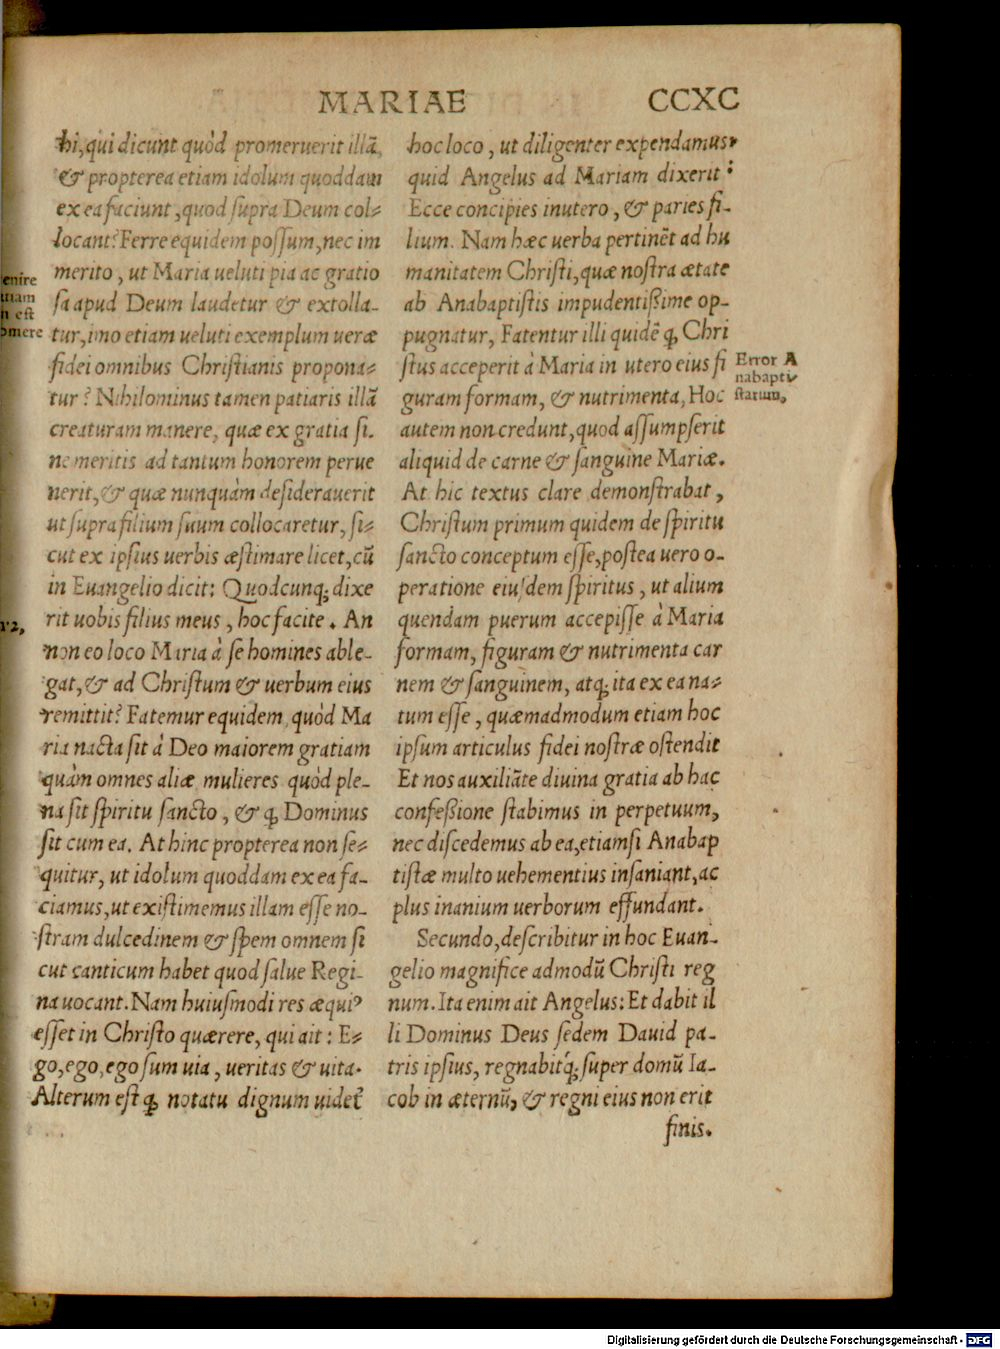 MARIAE CCXC
hi, qui dicunt quòd promeruerit illã,
& propterea etiam idolum quoddam
ex ea faciunt, quod ſupra Deum col⸗
locant? Ferre equidem poſſum, nec im
merito, ut Maria ueluti pia ac gratio
ſa apud Deum laudetur & extolla-
tur, imo etiam ueluti exemplum ueræ
fidei omnibus Chriſtianis propona⸗
tur? Nihilominus tamen patiaris illã
creaturam manere, quæ ex gratia ſi.
ne meritis ad tantum honorem perue
nerit, & quæ nunquàm deſiderauerit
ut ſupra filium ſuum collocaretur, ſi⸗
cut ex ipſius uerbis æſtimare licet, cũ
in Euangelio dicit: Quodcunq; dixe
rit uobis filius meus, hoc facite. An
non eo loco Maria à ſe homines able-
gat, & ad Chriſtum & uerbum eius
remittit? Fatemur equidem, quòd Ma
ria nacta ſit á Deo maiorem gratiam
quàm omnes aliæ mulieres quòd ple-
na ſit ſpiritu ſancto, & ꝙ Dominus
ſit cum ea. At hinc propterea non ſe⸗
quitur, ut idolum quoddam ex ea fa-
ciamus, ut exiſtimemus illam eſſe no-
ſtram dulcedinem & ſpem omnem ſi
cut canticum habet quod ſalue Regi-
na uocant. Nam huiuſmodi res æquiꝰ
eſſet in Chriſto quærere, qui ait: E⸗
go, ego, ego ſum uia, ueritas & uita.
Alterum eſt ꝙ notatu dignum uidet᷑
enire
riam
n eſt
omere
12,
hoc loco, ut diligenter expendamus
quid Angelus ad Mariam dixerit:
Ecce concipies in utero, & paries fi-
lium. Nam hæc uerba pertinẽt ad hu
manitatem Chriſti, quæ noſtra ætate
ab Anabaptiſtis impudentißime op-
pugnatur, Fatentur illi quidẽ ꝙ Chri
ſtus acceperit à Maria in utero eius fi
guram formam, & nutrimenta, Hoc
autem non credunt, quod aſſumpſerit
aliquid de carne & ſanguine Mariæ.
At hic textus clare demonſtrabat,
Chriſtum primum quidem de ſpiritu
ſancto conceptum eſſe, poſtea uero o-
peratione eiuſdem ſpiritus, ut alium
quendam puerum accepiſſe à Maria
formam, figuram & nutrimenta car
nem & ſanguinem, atq; ita ex ea na⸗
tum eſſe, quæmadmodum etiam hoc
ipſum articulus fidei noſtræ oſtendit
Et nos auxiliãte diuina gratia ab hac
confeßione ſtabimus in perpetuum,
nec diſcedemus ab ea, etiamſi Anabap
tiſtæ multo uehementius inſaniant, ac
plus inanium uerborum effundant.
Secundo, deſcribitur in hoc Euan-
gelio magnifice admodũ Chriſti reg
num. Ita enim ait Angelus: Et dabit il
li Dominus Deus ſedem Dauid pa-
tris ipſius, regnabitq́; ſuper domũ Ia-
cob in æternũ, & regni eius non erit
finis.
Error A
nabapti
ſtarum,
Digitalisierung gefördert durch die Deutsche Forschungsgemeinschaft - DFG